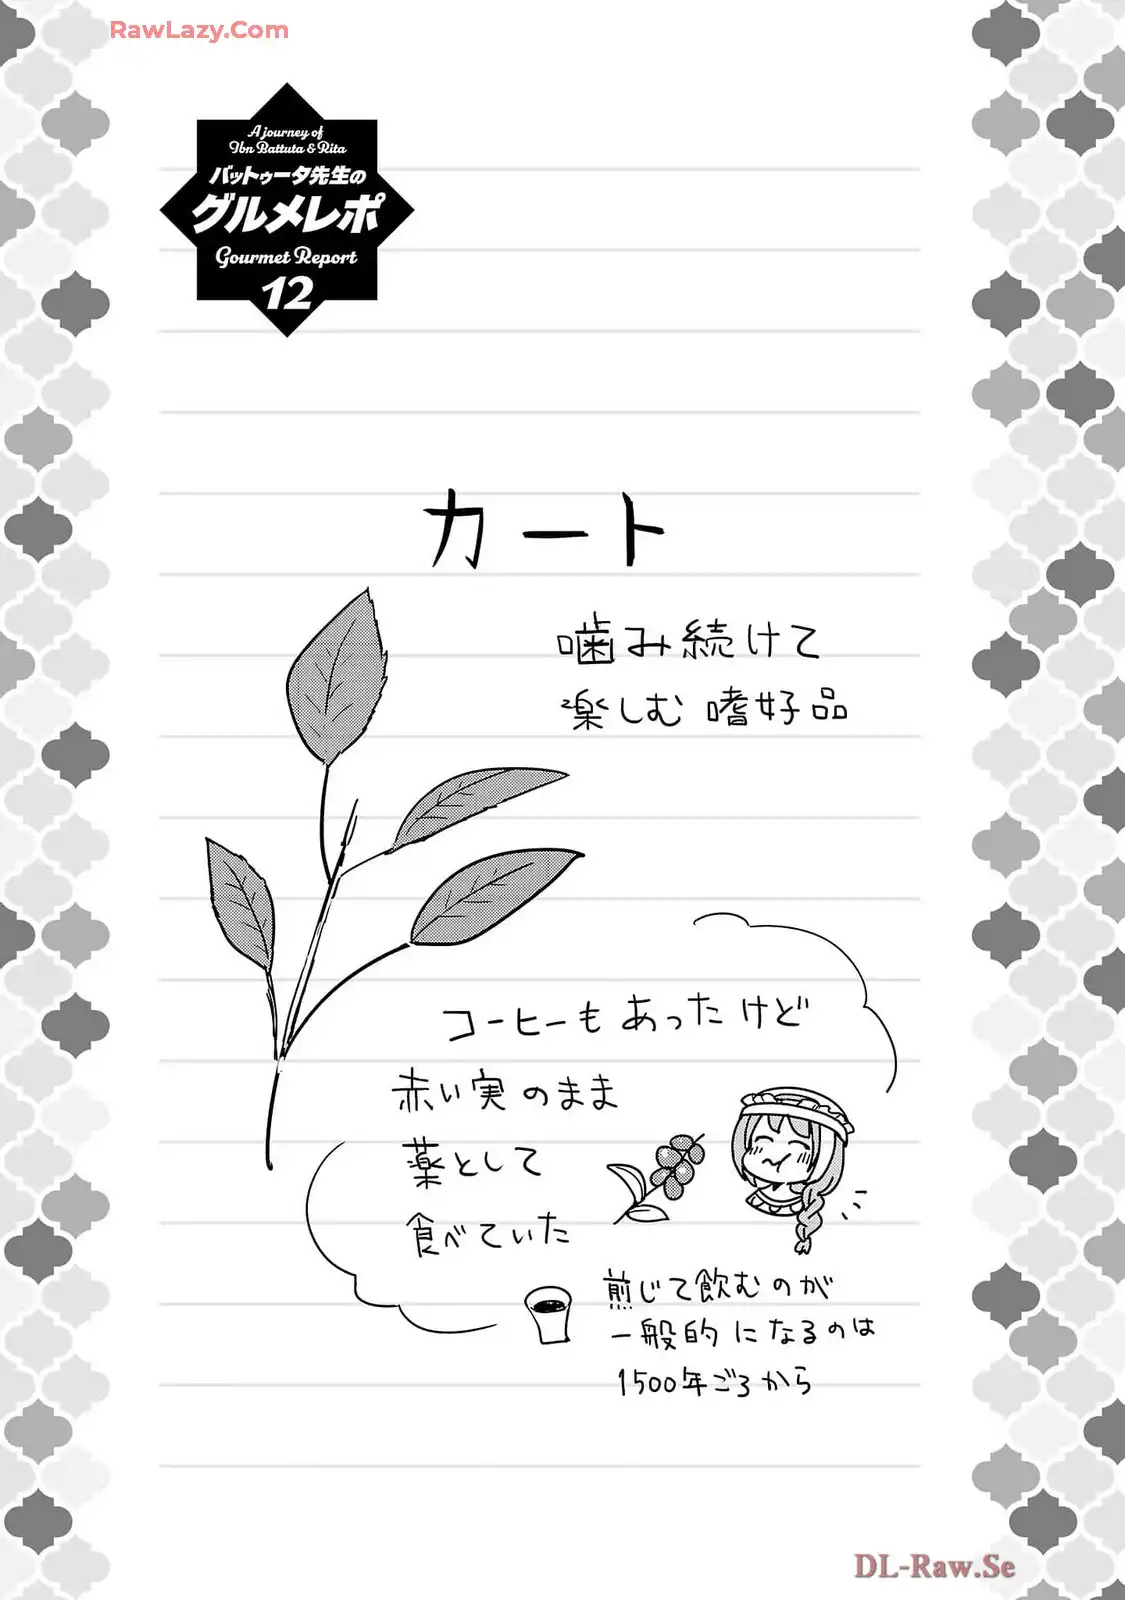 RawLazy.Com
A journey of
Ibn Battuta & Rita
バットゥータ先生の
グルメレポ
Gourmet Report
12
カート
噛み続けて
楽しむ嗜好品
コーヒーもあったけど
赤い実のまま
薬として
食べていた
煎じて飲むのが
一般的になるのは
1500年ごろから
DL-Raw.Se